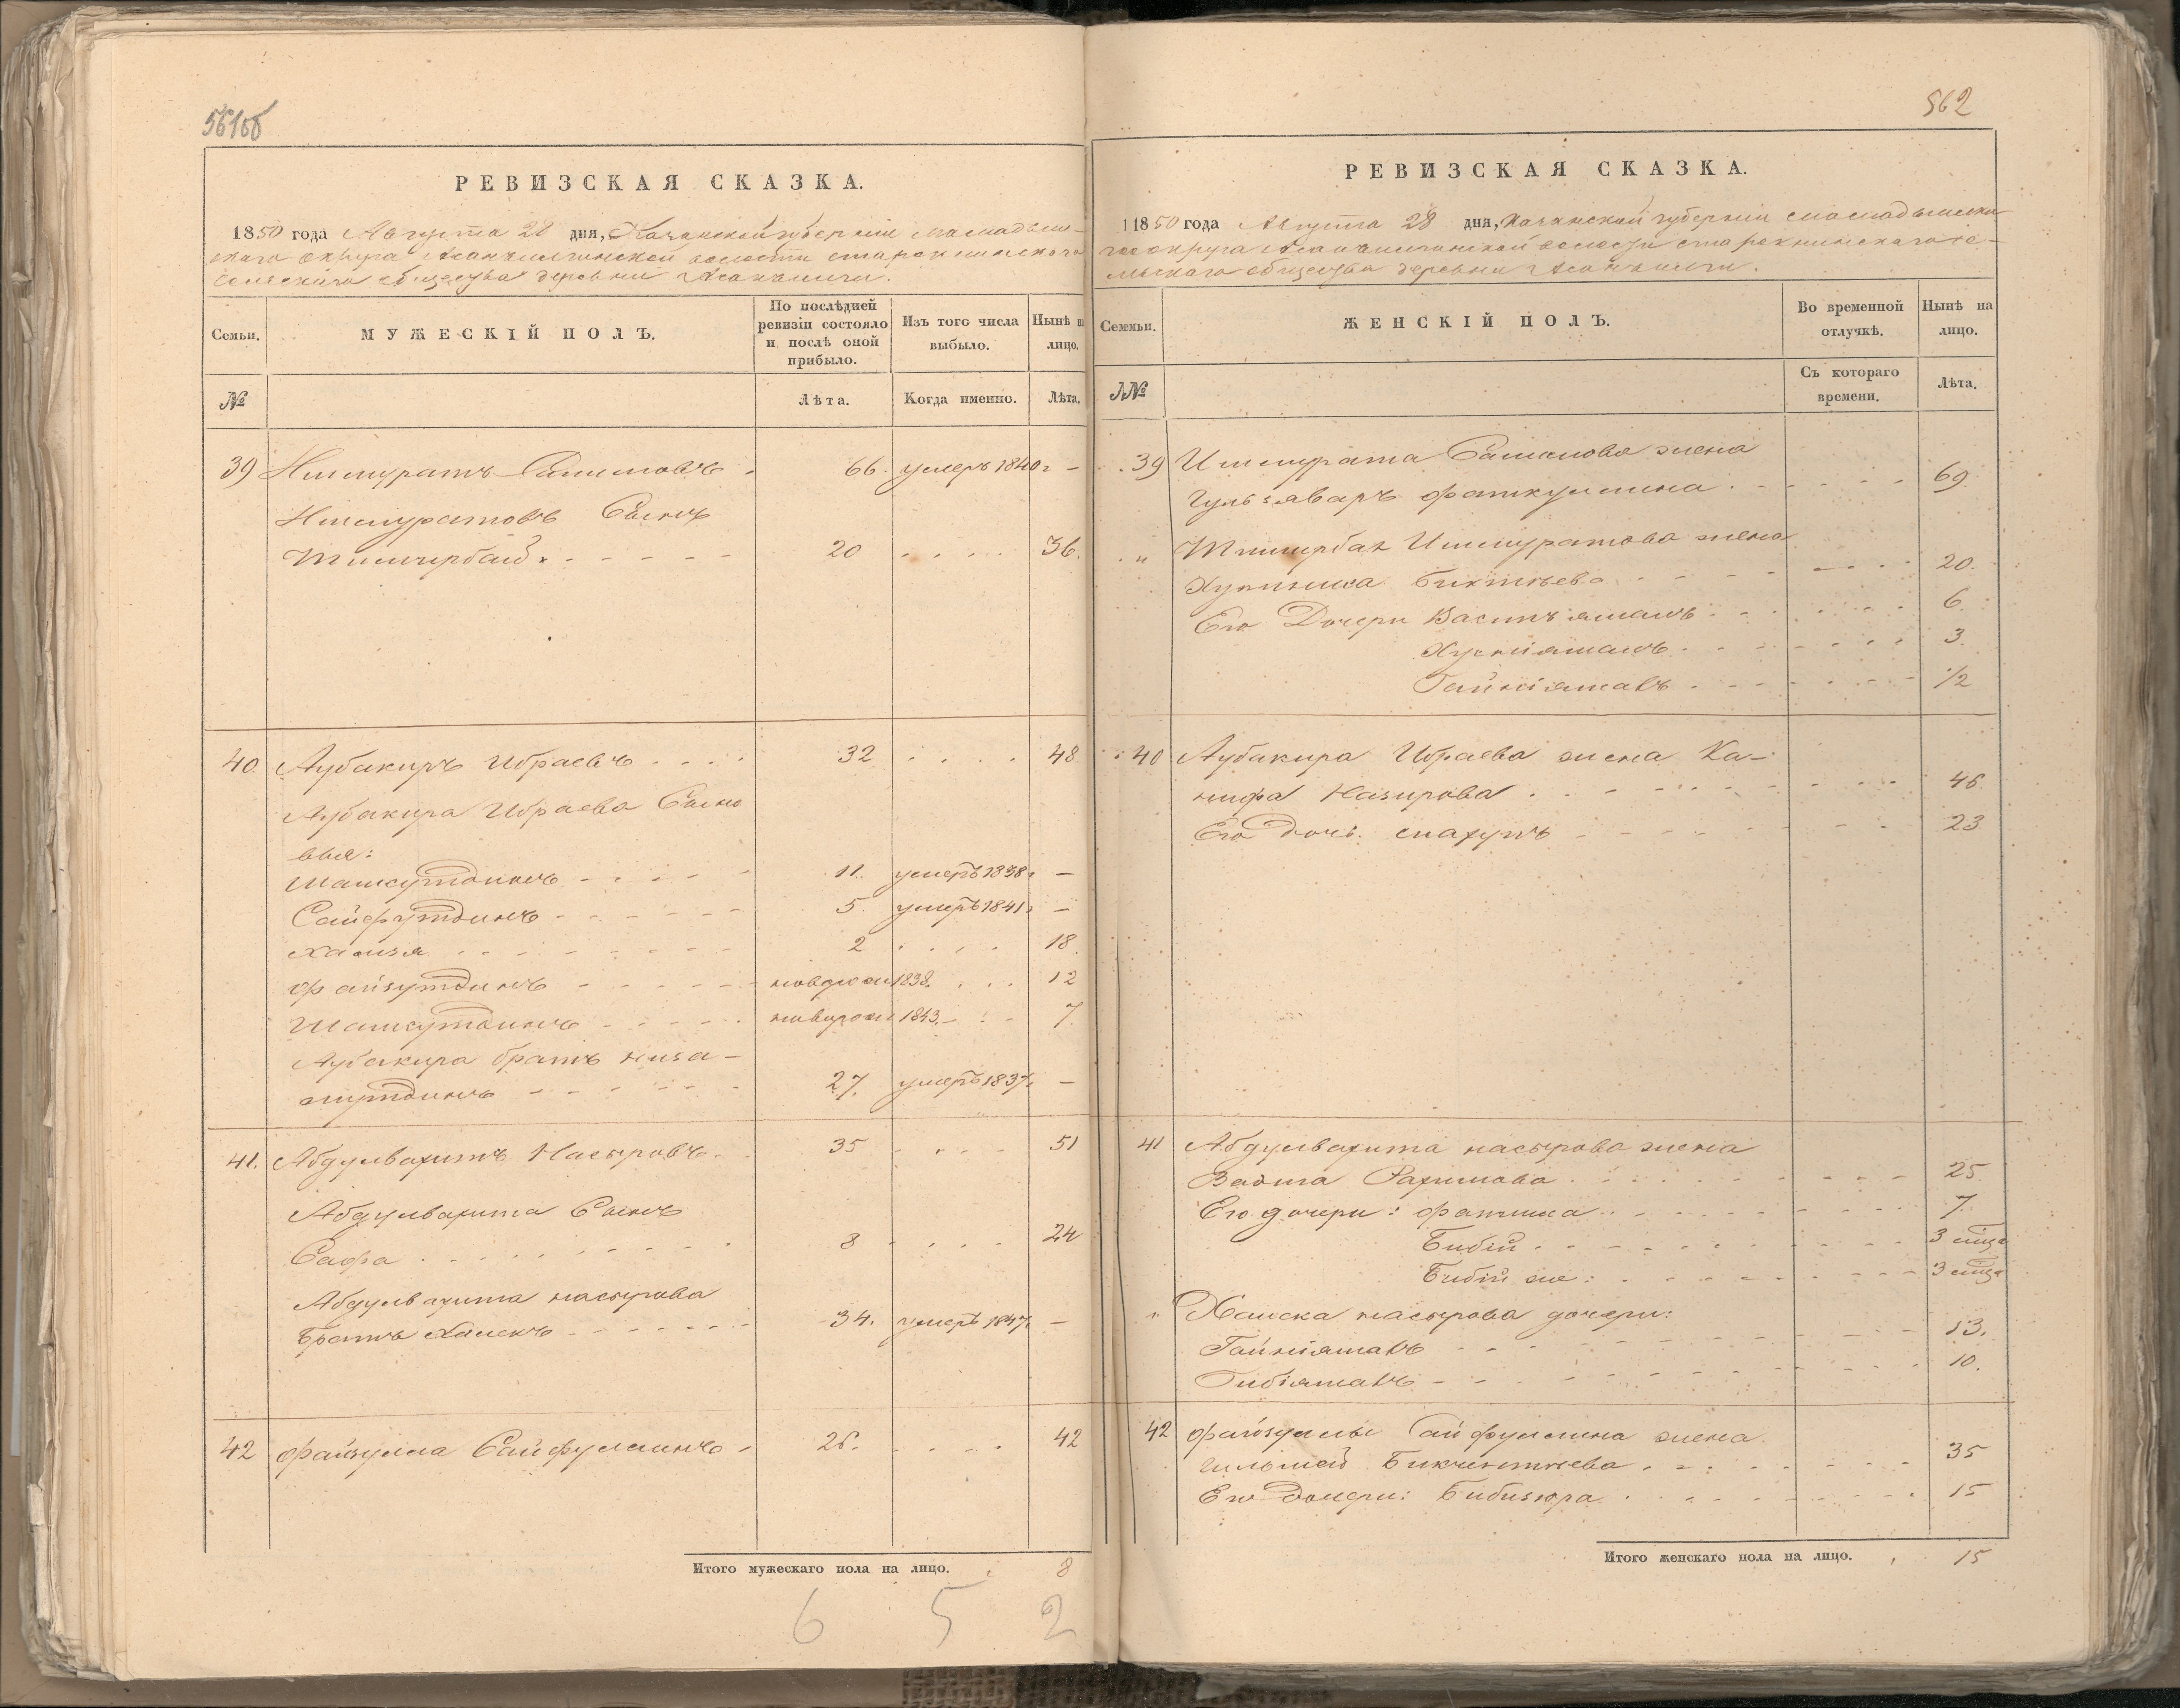 561об
РЕВИЗСКАЯ СКАЗКА.
1850 года Августа 28 дня, Казанской губернии мамадыш-
скаго округа Асанъилгинской волости старокнинскаго
сельскаго общества деревни Асанъилги.
Семьи. МУЖЕСКІЙ ПОЛЪ. По послѣдней ревизіи состояло и послѣ оной прибыло. Изъ того числа выбыло. Нынѣ на лицо.
№ Лѣта. Когда именно. Лѣта.
39 Ишмуратъ Салимовъ 66 умеръ 1840г -
Ишмуратовъ Сынъ
Тимирбай 20 36.
40 Аубакиръ Ибраевъ 32 48
Аубакира Ибраева Сыно
вья:
Шамсутдинъ 11. умеръ 1838г -
Сайфутдинъ 5 умеръ 1841г -
Хамзя 2 18
Файзутдинъ новорож 1838. 12
Шамсутдинъ новорож 1843. 7
Аубакира братъ низа-
мутдинъ 27. умеръ 1837г -
41. Абдулвахитъ Насыровъ 35 51
Абдулвахита Сынъ
Сафа 8 24
Абдулвахита насырова
Братъ Хамекъ 34. умеръ 1847г -
42 Файзулла Сайфуллинъ 26. 42
Итого мужескаго пола на лицо. 8
6 5 2
562
РЕВИЗСКАЯ СКАЗКА.
1850 года Августа 28 дня, Казанской губернии мамадышска
го округа Асанъилгинской волости старокнинскаго се-
льскаго общества деревни Асанъилги.
Семьи. ЖЕНСКІЙ ПОЛЪ. Во временной отлучкѣ. Нынѣ на лицо.
№ Съ котораго времени. Лѣта.
39 Ишмурата Салимова жена
Гульзяваръ Фаткуллина 69
" Тимирбая Ишмуратова жена
Биктѣева 20.
Его Дочери 6
Хуснiямалъ 3
Гайнiямалъ 1/2
40 Аубакира Ибраева жена Ха-
нифа Назирова 46
Его дочь Махупъ 23
41 Абдулвахита насырова жена
Рахимова 25
Его дочери: Фатима 7.
Бибiй 3 мѣсяца
Бибiй же: 3 мѣсяца
" Хамека насырова дочери:
Гайнiямалъ 13.
Бибiямалъ 10.
42 Файзуллы Сайфуллина жена
Бикчентѣева 35
Его Дочери: Бибизюра 15
Итого женскаго пола на лицо. 15